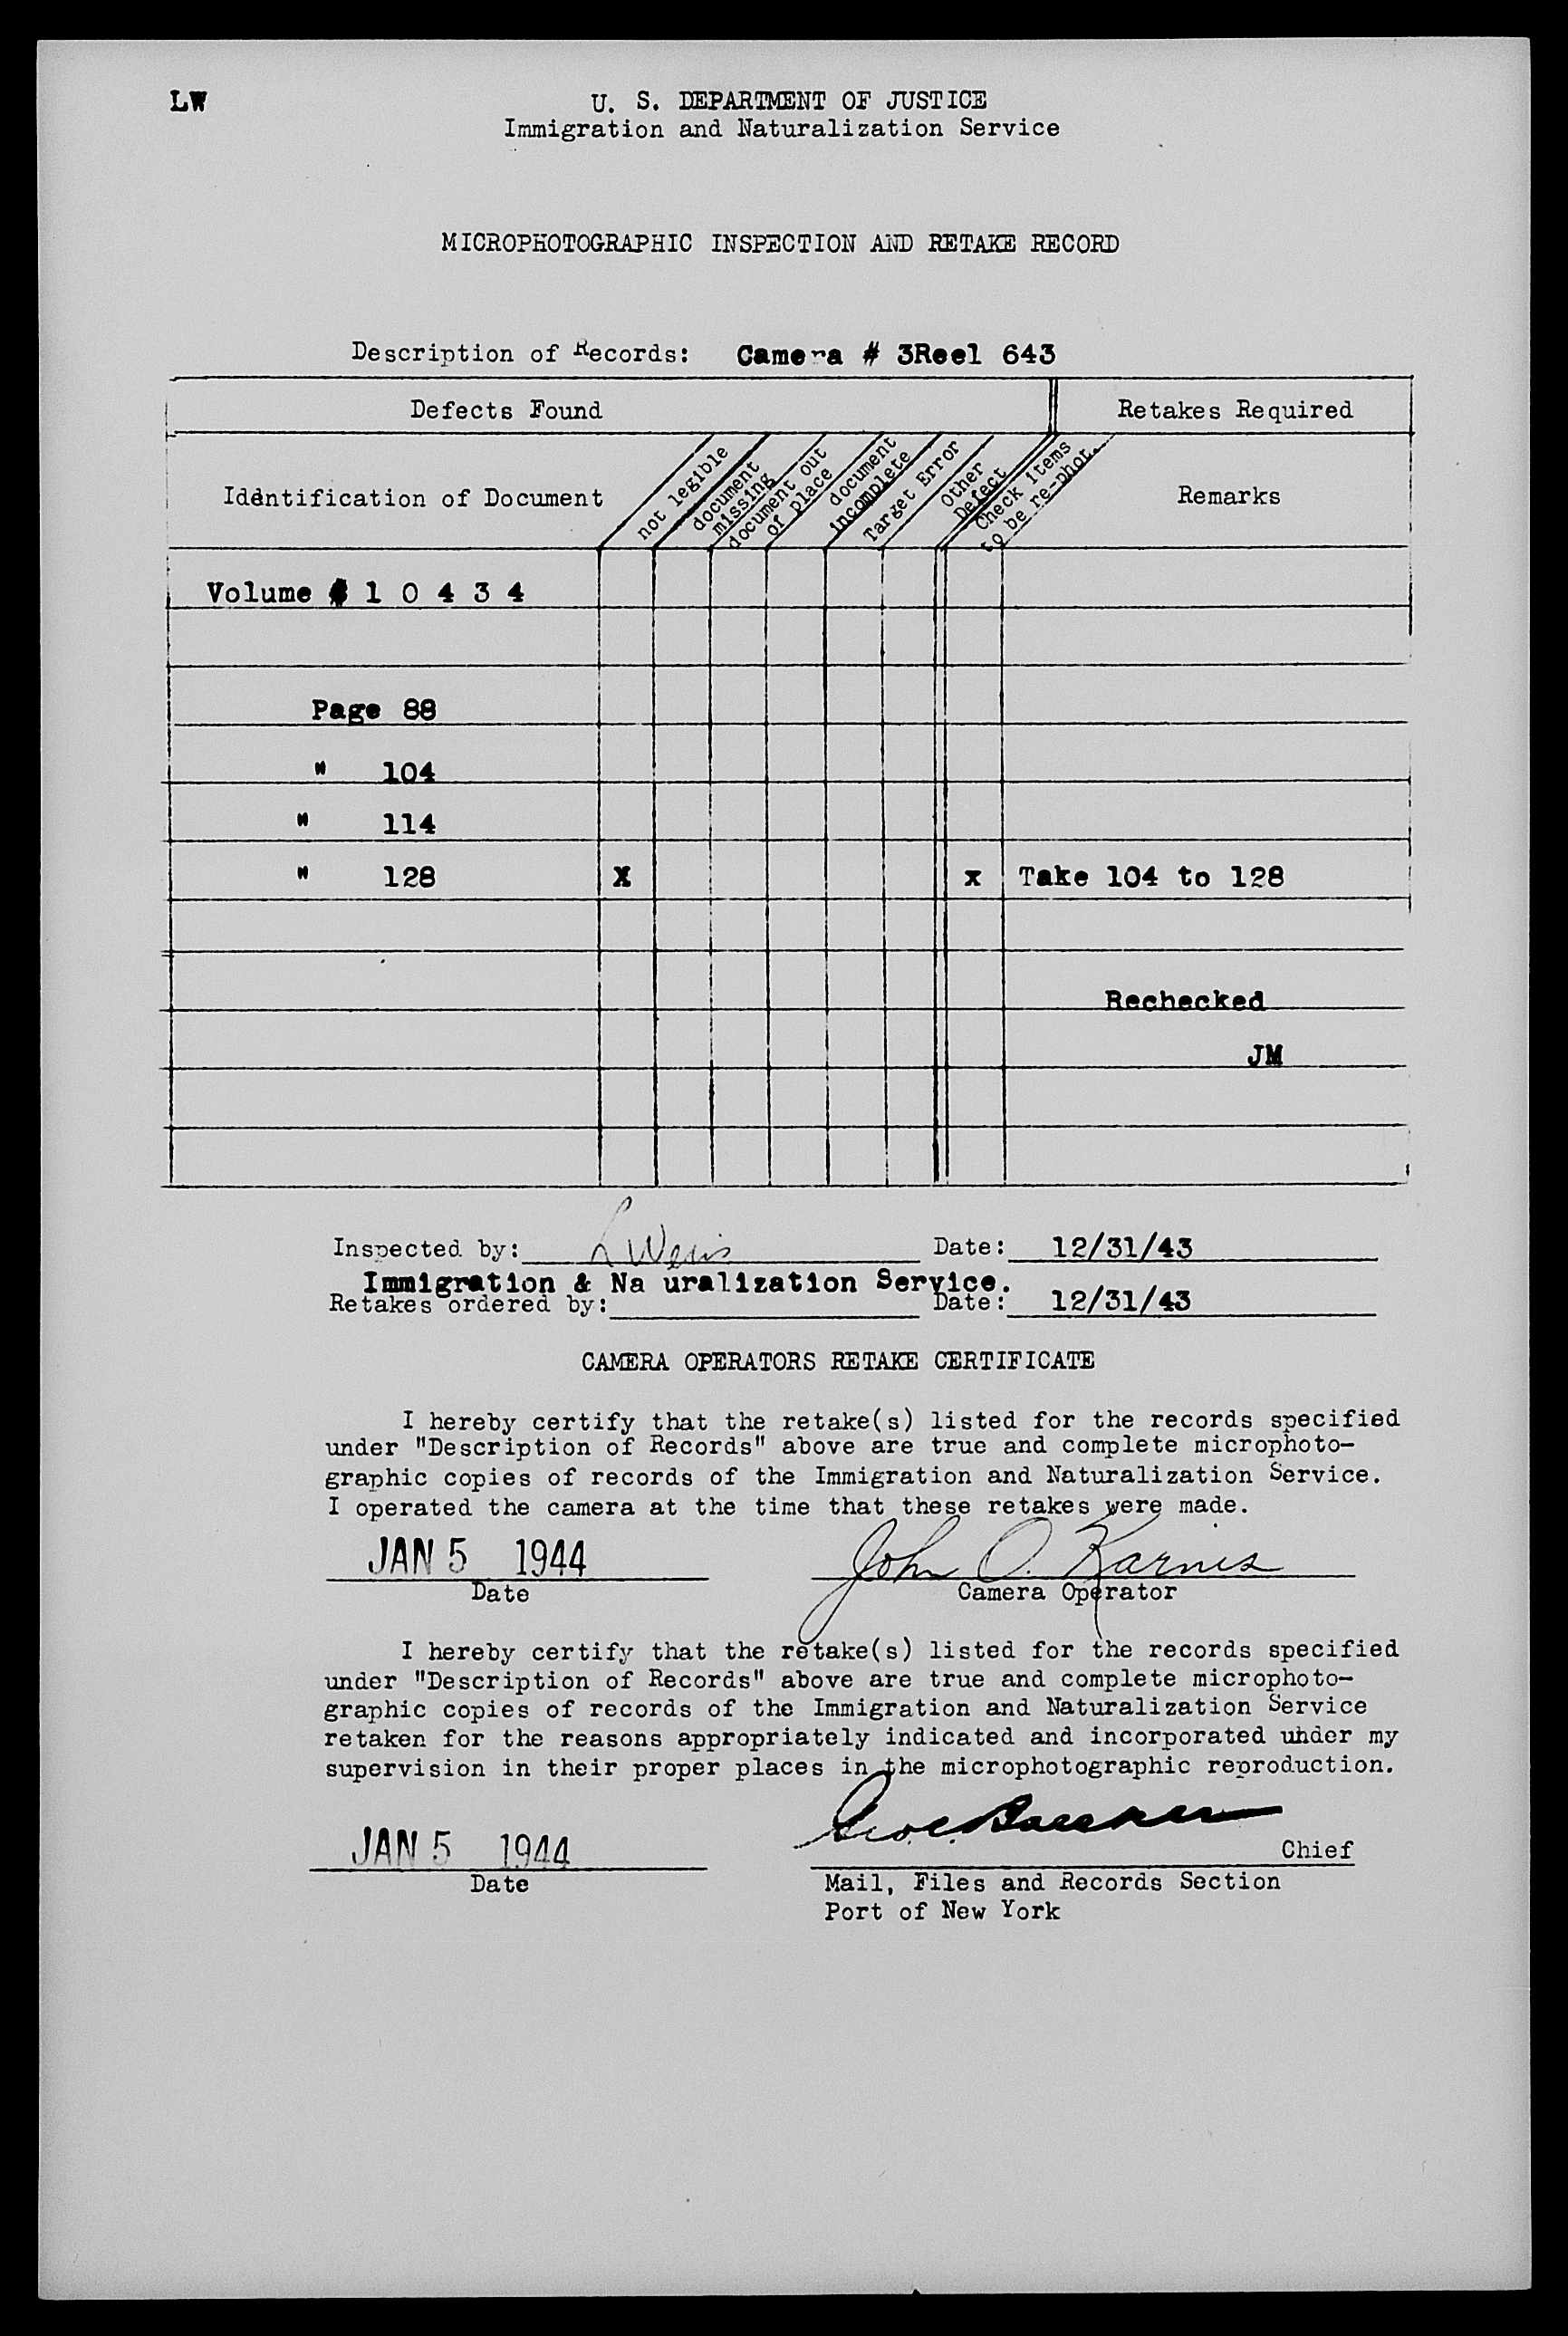 LW
U. S. DEPARTMENT OF JUSTICE
Immigration and Naturalization Service
MICROPHOTOGRAPHIC INSPECTION AND RETAKE RECORD
Description of Records: Camera # 3Reel 643
Defects Found
Retakes Required
Identification of Document
not legible
document missing
document out of place
document incomplete
Target Error
Other Defect
Check items to be re-phot.
Remarks
Volume # 1 0 4 3 4
Page 88
" 104
" 114
" 128 X x Take 104 to 128
Rechecked
JM
Inspected by: L Date: 12/31/43
Immigration & Na uralization Service.
Retakes ordered by: Date: 12/31/43
CAMERA OPERATORS RETAKE CERTIFICATE
I hereby certify that the retake(s) listed for the records specified
under "Description of Records" above are true and complete microphoto-
graphic copies of records of the Immigration and Naturalization Service.
I operated the camera at the time that these retakes were made.
JAN 5 1944 John O. Karnis
Date Camera Operator
I hereby certify that the retake(s) listed for the records specified
under "Description of Records" above are true and complete microphoto-
graphic copies of records of the Immigration and Naturalization Service
retaken for the reasons appropriately indicated and incorporated under my
supervision in their proper places in the microphotographic reproduction.
JAN 5 1944 Chief
Date Mail, Files and Records Section
Port of New York